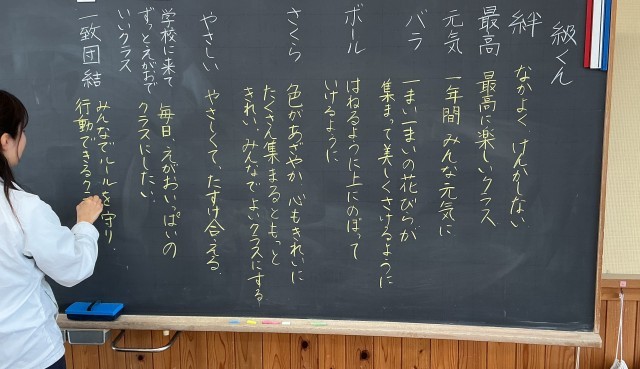 級くん
絆
なかよく、けんかしない
最高
最高に楽しいクラス
元気
一年間みんな元気に
バラ
一まい一まいの花びらが
集まって美しくさけるように
ボール
はねるように上にのぼって
いけるように
さくら
色があざやか、心もきれいに
たくさん集まるともっと
きれい。みんなでよいクラスにする
やさしい
やさしくて、たすけ合える。
学校に来て
ずっとえがおで
いいクラス
毎日、えがおいっぱいの
クラスにしたい。
一致団結
みんなでルールを守り、
行動できるク